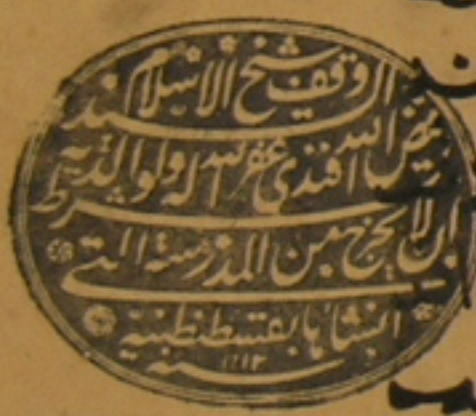 وقف شيخ الاسلام السيد
فيض الله افندي غفر الله له ولوالديه بشرط
ان لا يخرج من المدرسة التي
انشاها بقسطنطينية
سنة ١١١٣